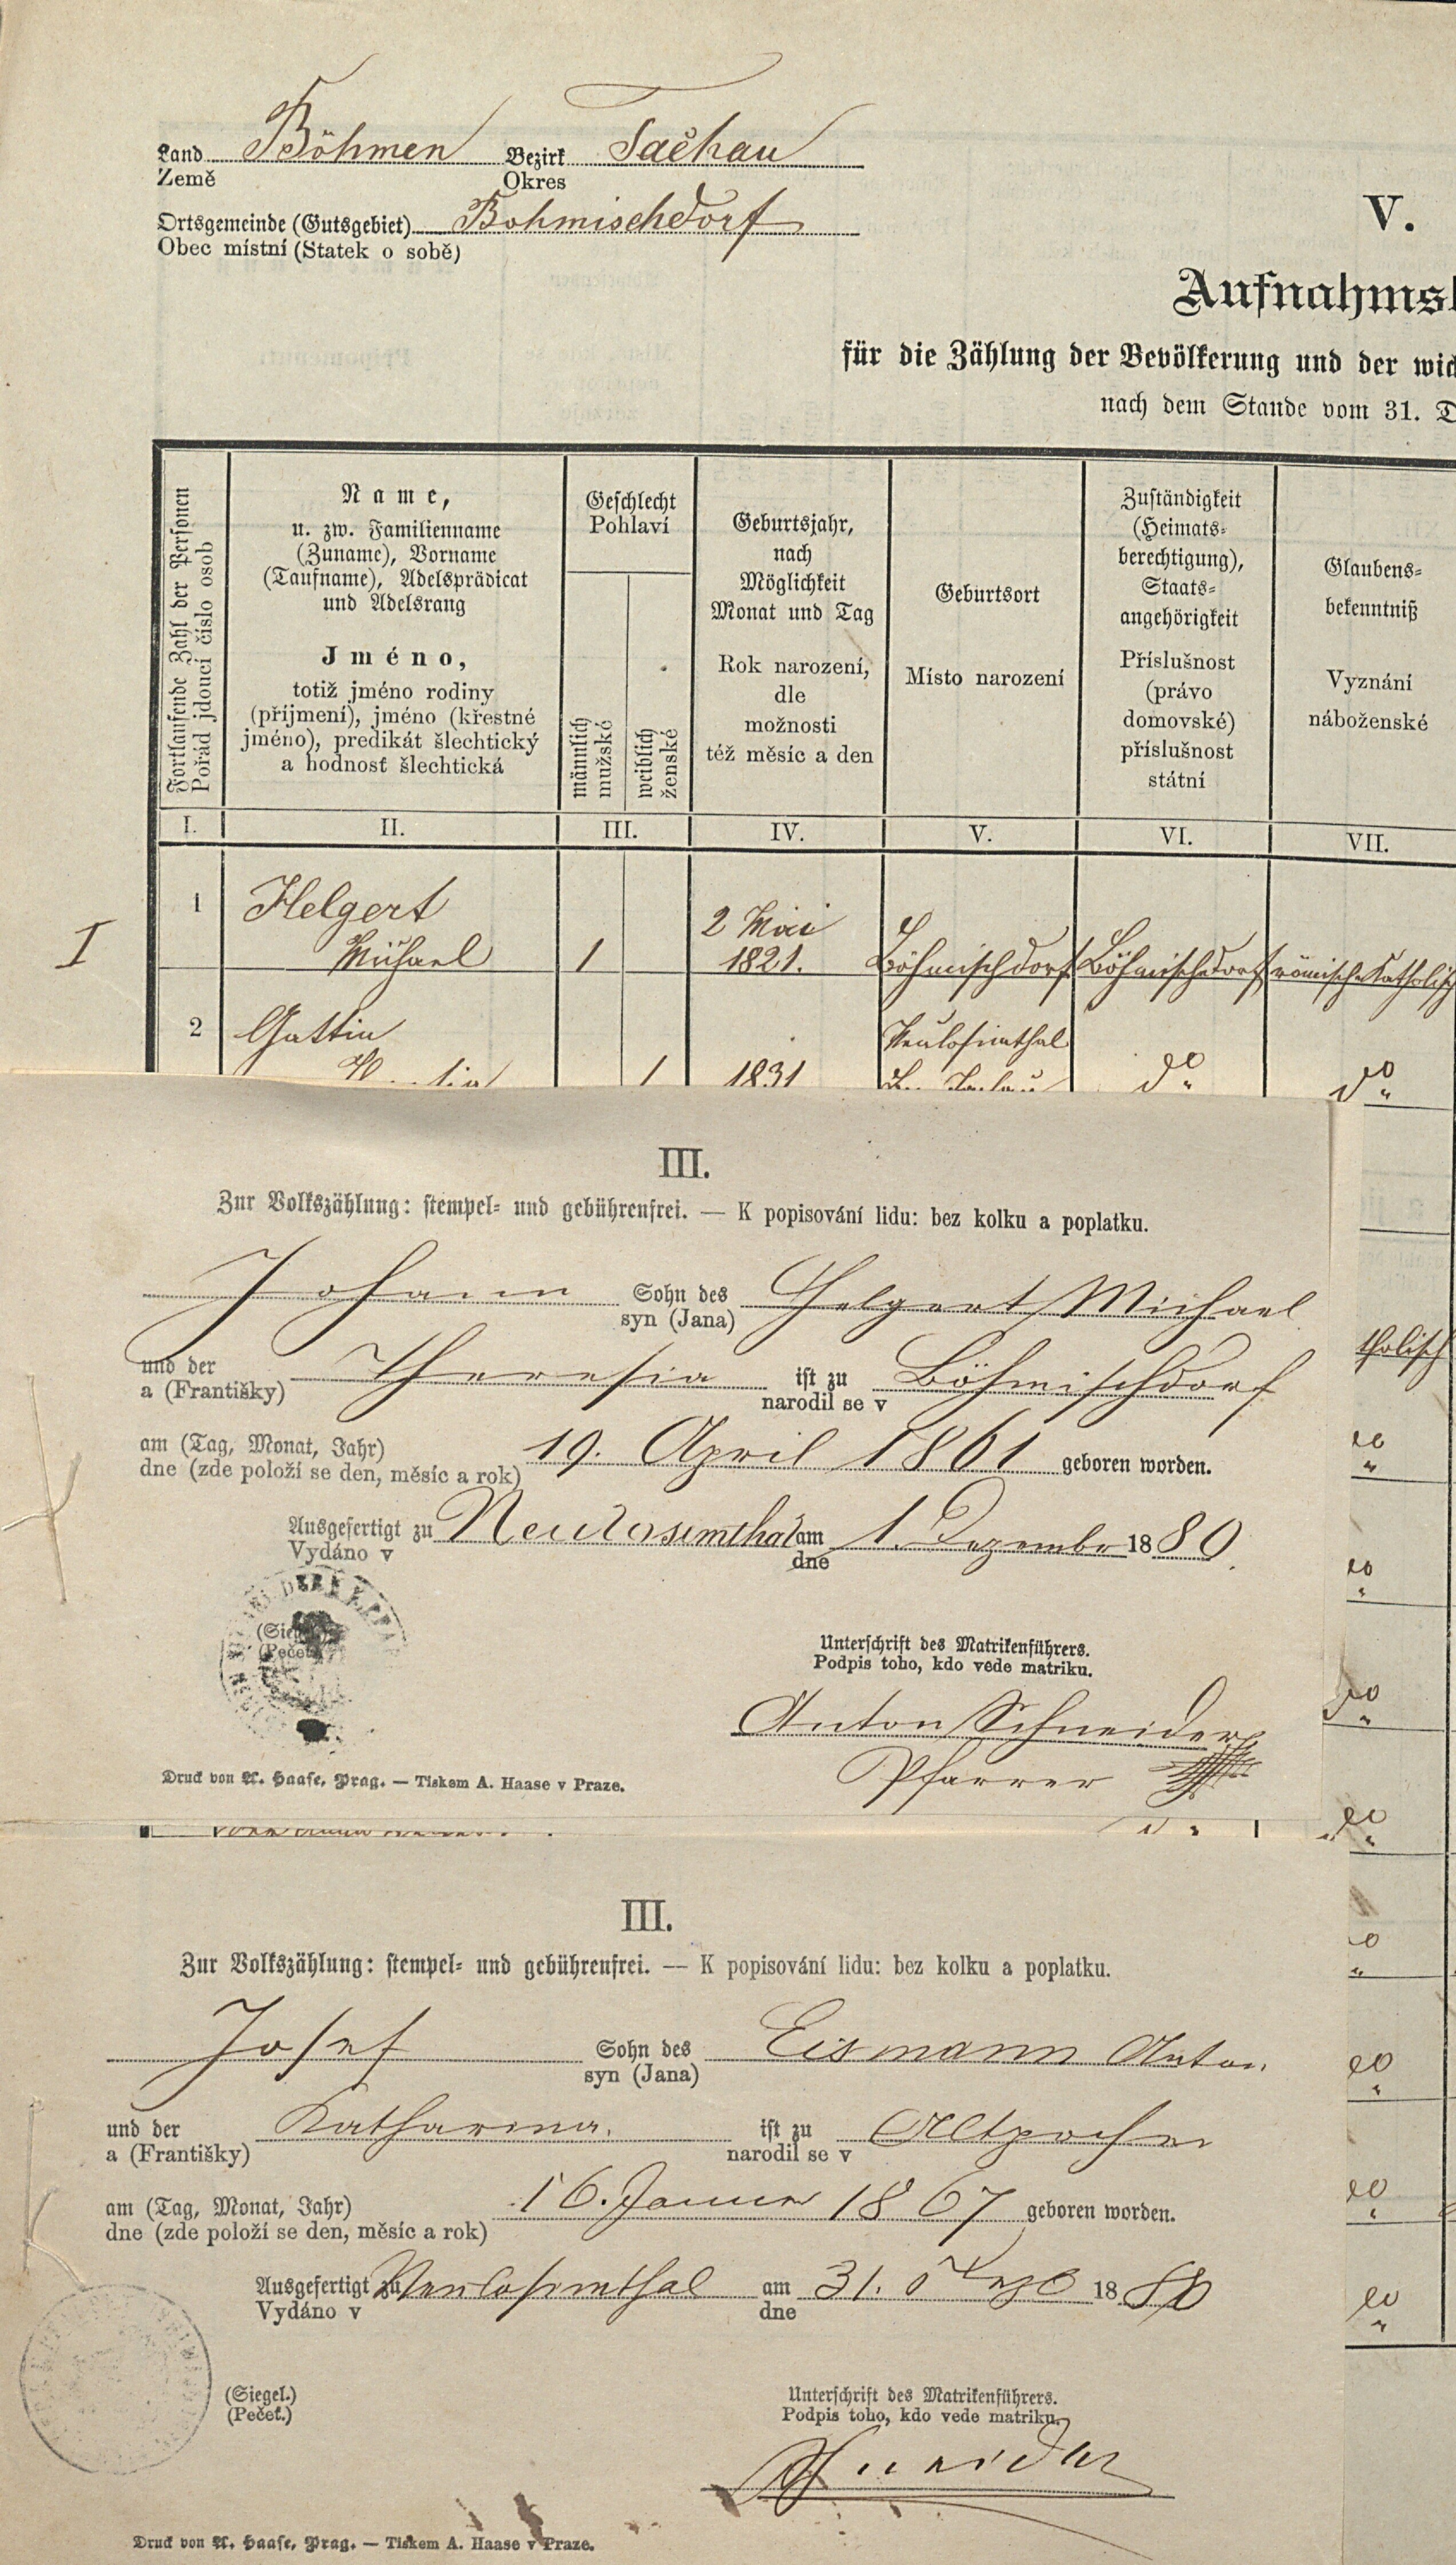 Land Böhmen Bezirk Tachau
Země Okres
Ortsgemeinde (Gutsgebiet) Bohmischdorf
Obec místní (Statek o sobě)
V.
Aufnahmsb
für die Zählung der Bevölkerung und der wic
nach dem Stande vom 31. D
Fortlaufende Zahl der Personen
Pořád jdoucí číslo osob
Name,
u. zw. Familienname
(Zuname), Vorname
(Taufname), Adelsprädicat
und Adelsrang
Jméno,
totiž jméno rodiny
(příjmení), jméno (křestné
jméno), predikát šlechtický
a hodnosť šlechtická
Geschlecht
Pohlaví
männlich
mužské
weiblich
ženské
Geburtsjahr,
nach
Möglichkeit
Monat und Tag
Rok narození,
dle
možnosti
též měsíc a den
Geburtsort
Místo narození
Zuständigkeit
(Heimats-
berechtigung),
Staats-
angehörigkeit
Příslušnost
(právo
domovské)
příslušnost
státní
Glaubens-
bekenntniß
Vyznání
náboženské
I. II. III. IV. V. VI. VII.
1 Helgert 2 Mai
I Michael 1 1821. Böhmischdorf Böhmischdorf römisch Katholisch
2 Gattin Neulosimthal
1 1831 do do
III.
Zur Volkszählung: stempel- und gebührenfrei. — K popisování lidu: bez kolku a poplatku.
Johann Sohn des Helgert Michael
syn (Jana)
und der Theresia ist zu Böhmischdorf
a (Františky) narodil se v
am (Tag, Monat, Jahr) 19. April 1861 geboren worden.
dne (zde položí se den, měsíc a rok)
Ausgefertigt zu Neulosimthal am 1. Dezember 1880.
Vydáno v dne
(Siegel.)
(Pečeť.)
Unterschrift des Matrikenführers.
Podpis toho, kdo vede matriku.
Anton Schneider
Pfarrer
Druck von A. Haase, Prag. — Tiskem A. Haase v Praze.
tholisch
do
do
do
do
do
do
do
do
III.
Zur Volkszählung: stempel- und gebührenfrei. — K popisování lidu: bez kolku a poplatku.
Josef Sohn des Eismann Anton
syn (Jana)
und der Katharina. ist zu Altpocher
a (Františky) narodil se v
am (Tag, Monat, Jahr) 16. Januar 1867 geboren worden.
dne (zde položí se den, měsíc a rok)
Ausgefertigt zu Neulosimthal am 31. 1880
Vydáno v dne
(Siegel.)
(Pečeť.)
Unterschrift des Matrikenführers.
Podpis toho, kdo vede matriku.
Schneider
Druck von A. Haase, Prag. — Tiskem A. Haase v Praze.